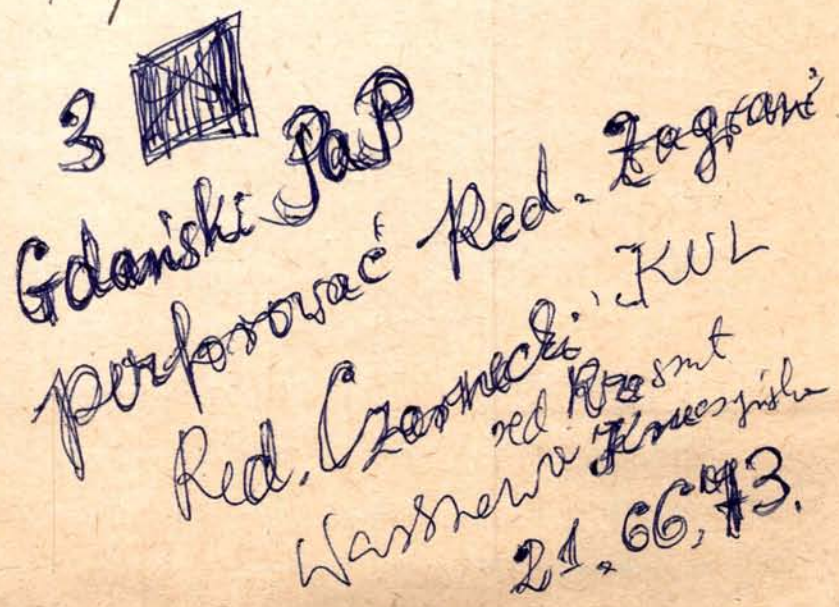 3
Gdański PaP
perforować Red. Zagrani
Red. Czarnecki KUL
red.
Warszawa
21.66.73.